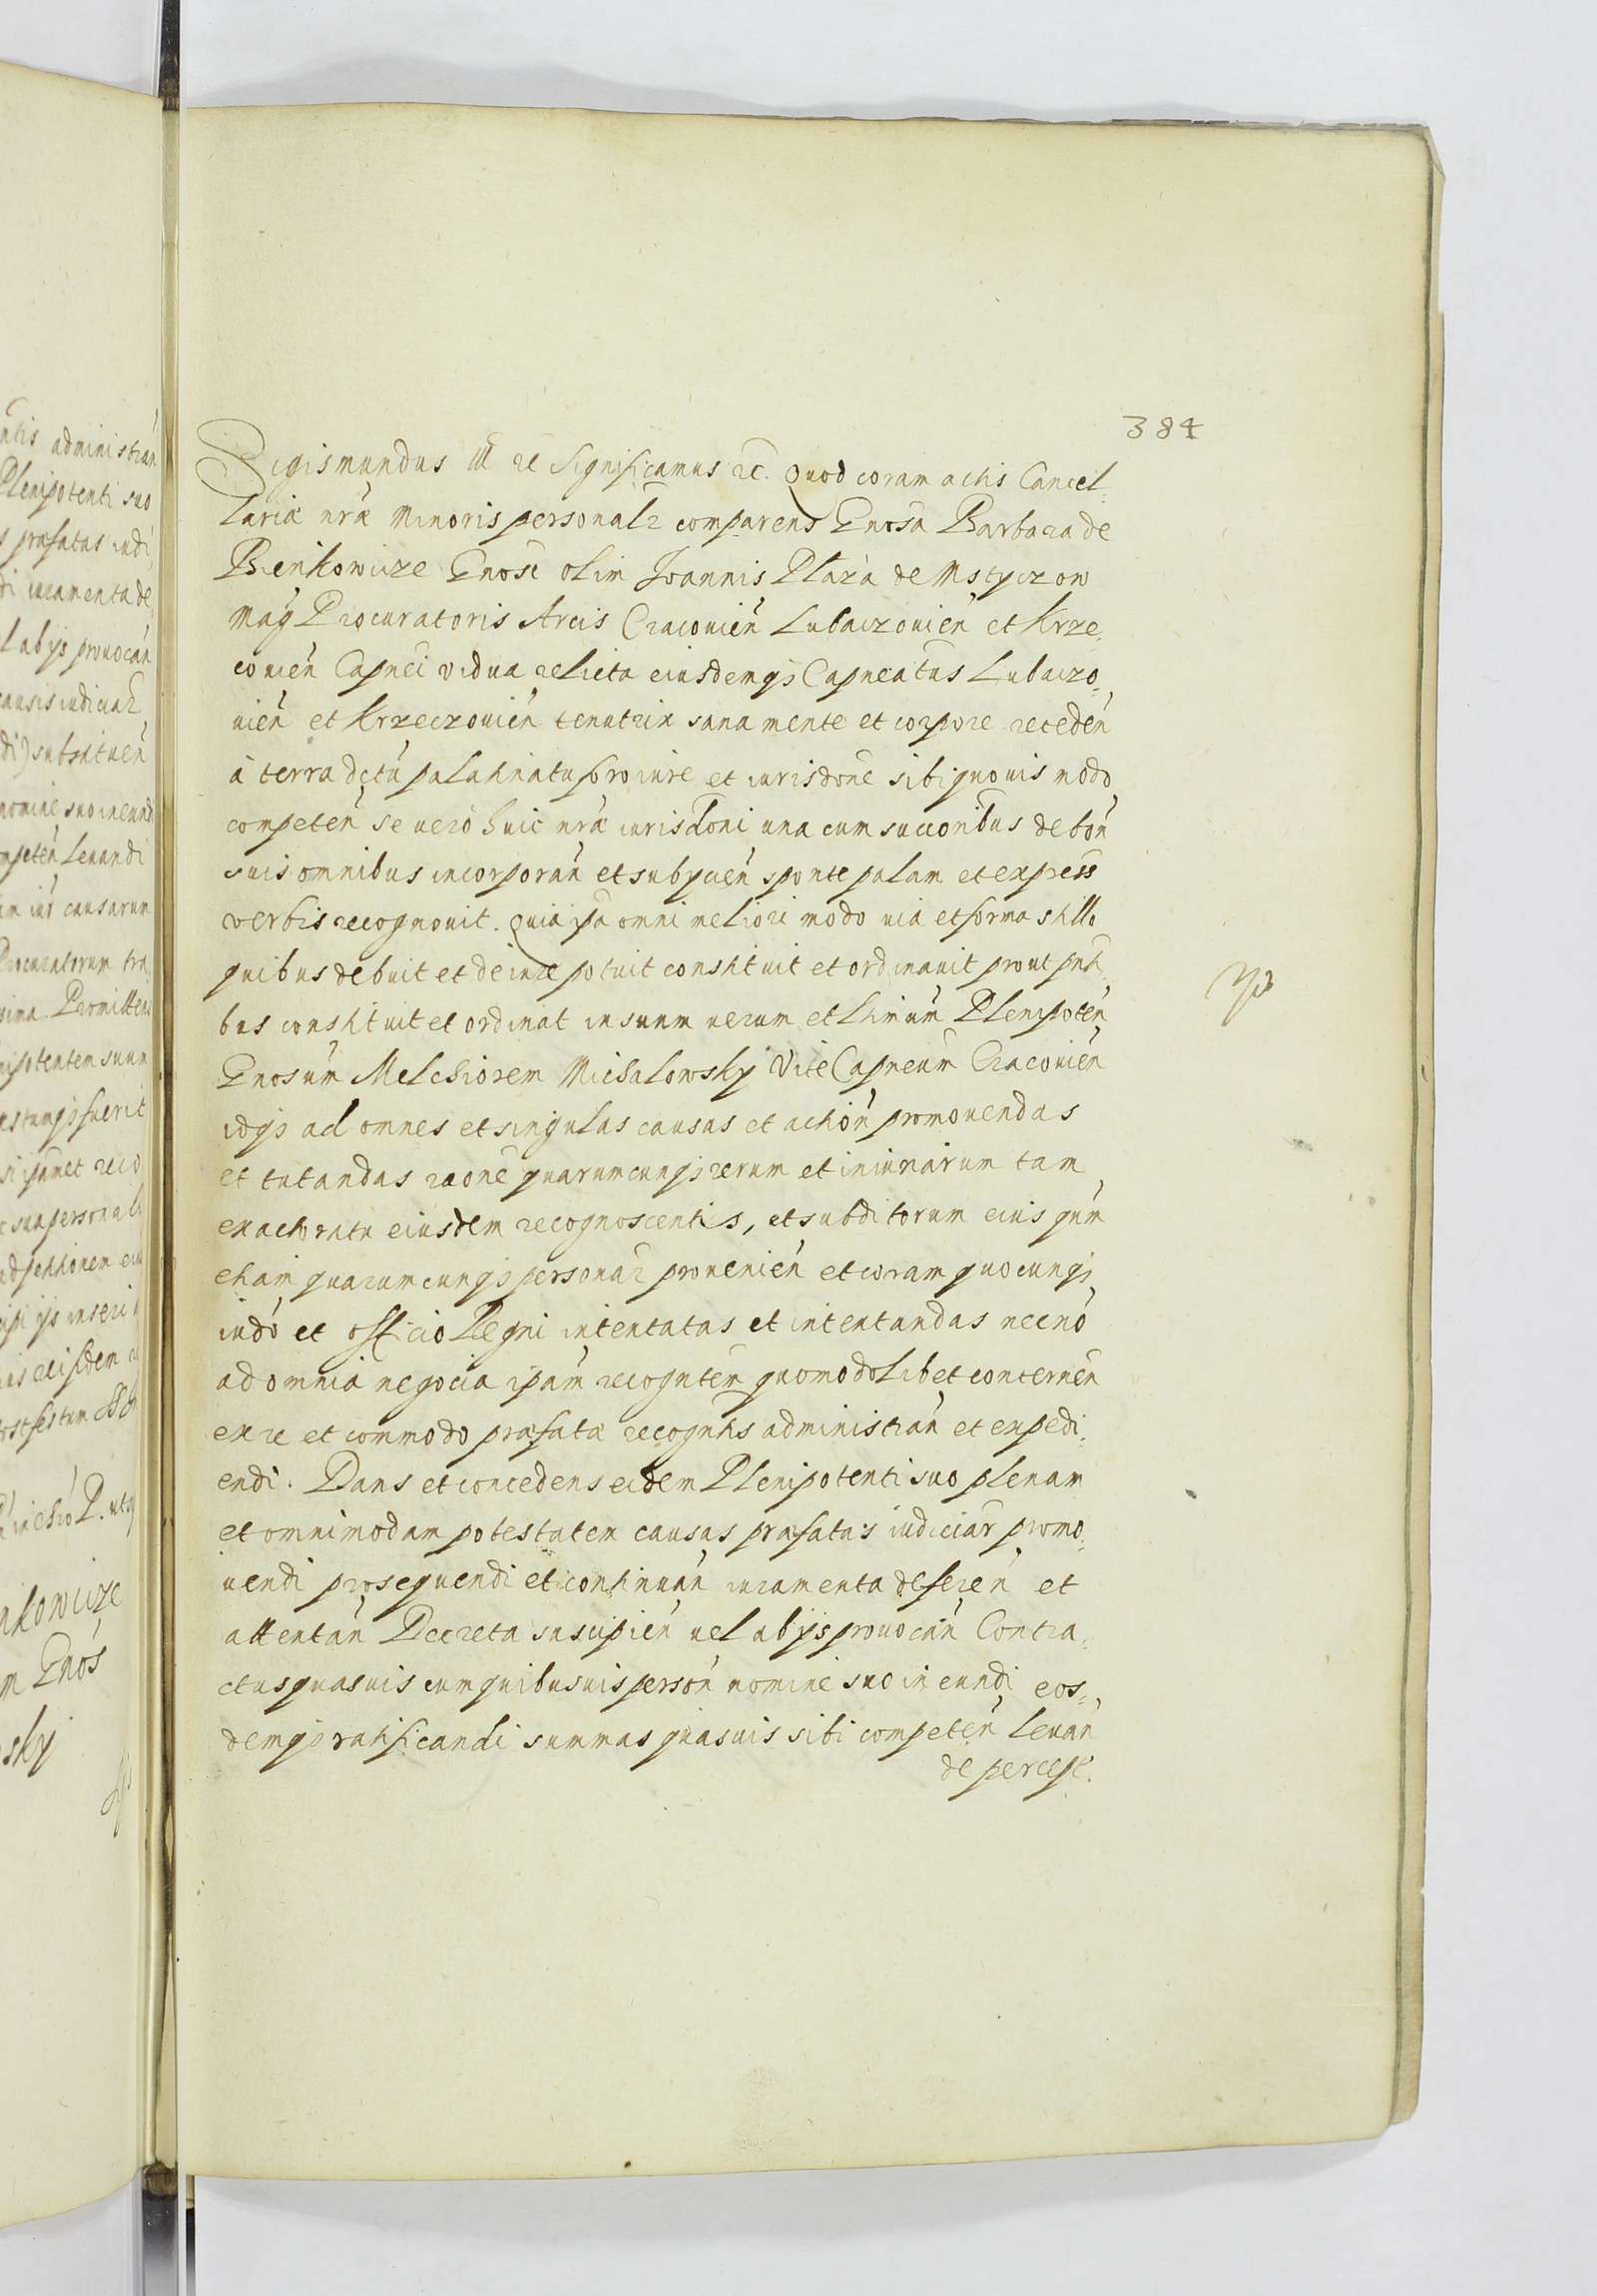 384
Sigismundus III etc Significamus etc. Quod coram actis Cancel-
lariæ nræ Minoris personalr comparens Gnosa Barbara de
Bienkowicze Gnosi olim Joannis Płaza de Mstyczow
Mag Procuratoris Arcis Cracouien Lubaczouien et Krze-
couien Capnei vidua relicta eiusdemq Capneatus Lubaczo-
uien et Krzeczouien tenutrix sana mente et corpore receden
à terra dctu palatinatu foro iure et iurisdone sibi quouis modo
competen se uero huic nræ iurisdoni una cum succoribus de bon
suis omnibus incorporan et subijcien sponte palam et express
verbis recognouit. Quia ipa omni meliori modo uia et forma stillo
quibus debuit et de iure potuit constituit et ordinauit prout pnti
bus constituit et ordinat in suum uerum et ltimum Plenipoten
Gnosum Melchiorem Michalowsky ViceCapneum Cracouien
idq ad omnes et singulas causas et action promouendas
et tutandas raone quarumcunq rerum et iniuriarum tam
ex actoratu eiusdem recognoscentis, et subditorum eius qum
etiam quarumcunq personar prouenien et coram quocunq
iudo et officio Regni intentatas et intentandas necno
ad omnia negocia ipam recognten quomodolibet concernen
ex re et commodo præfatæ recogntis administran et expedi-
endi. Dans et concedens eidem Plenipotenti suo plenam
et omnimodam potestatem causas præfatas iudiciar promo-
uendi prosequendi et continuan iuramenta deferen et
attentan Decreta suscipien uel ab ijs prouocan Contra-
ctus quasuis cum quibusuis person nomine suo in eundi eos-
demq ratificandi summas quasuis sibi competen leuan
de percept.